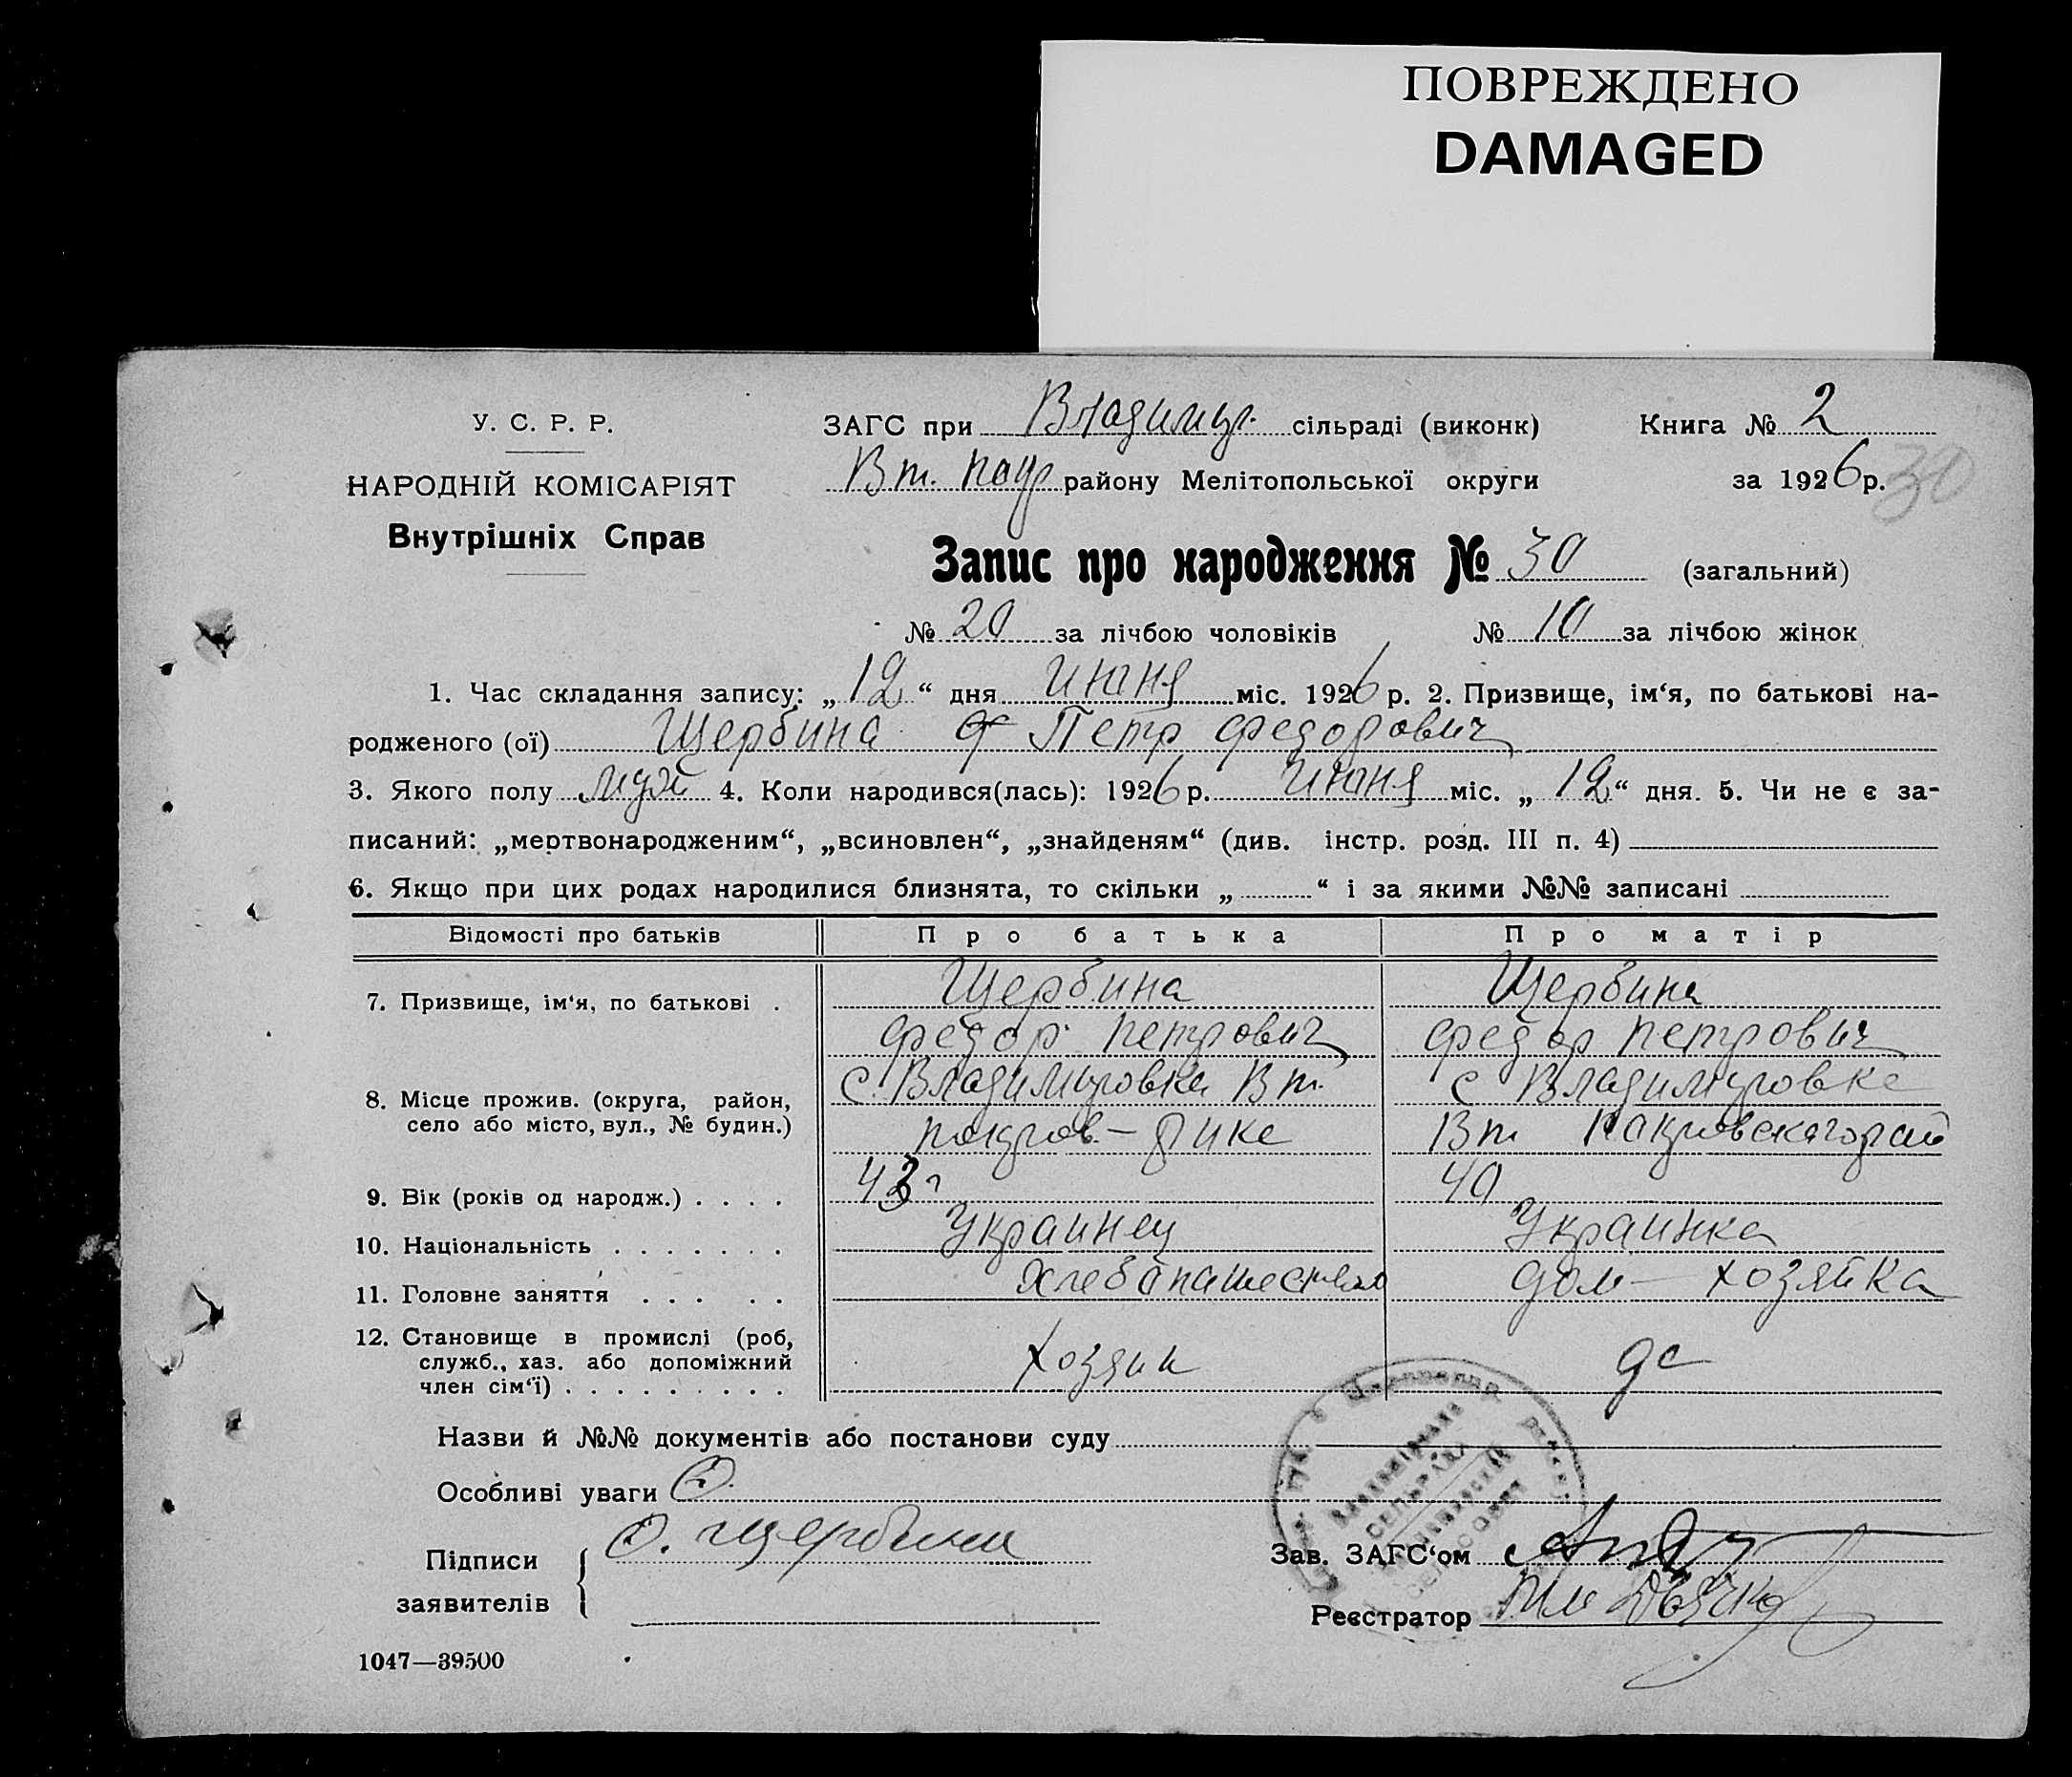 ПОВРЕЖДЕНО
DAMAGED
У. С. Р. Р.
НАРОДНІЙ КОМІСАРІЯТ
Внутрішніх Справ
ЗАГС при Владимир. сільраді (виконк) Книга № 2
Вт. покр району Мелітопольської округи за 1926 р. 30
Запис про народження № 30 (загальний)
№ 20 за лічбою чоловіків № 10 за лічбою жінок
1. Час складання запису: „12“ дня июня міс. 1926 р. 2. Призвище, ім‘я, по батькові на-
родженого (ої) Щербина Петр Федорович
3. Якого полу муж 4. Коли народився(лась): 1926 р. июня міс. „12“ дня. 5. Чи не є за-
писаний: „мертвонародженим“, „всиновлен“, „знайденям“ (див. інстр. розд. III п. 4)
6. Якщо при цих родах народилися близнята, то скільки „ “ і за якими №№ записані
Відомості про батьків Про батька Про матір
7. Призвище, ім‘я, по батькові . Щербина Щербина
Федор Петрович Федор Петрович
8. Місце прожив. (округа, район, село або місто, вул., № будин.) с. Владимировка Вт. с Владимировке
покров. Вт Покровскагорай
9. Вік (років од народж.) . . . . 43 г 40
10. Національність . . . . . . . Украинец Украинка
11. Головне заняття . . . . . Хлебопашество дом — хозяйка
12. Становище в промислі (роб, служб., хаз. або допоміжний член сім‘ї) . . . . . . . . . Хозяин дс
Назви й №№ документів або постанови суду
Особливі уваги
Підписи заявителів Ф. Щербина
Зав. ЗАГС‘ом
Реєстратор
1047—39500